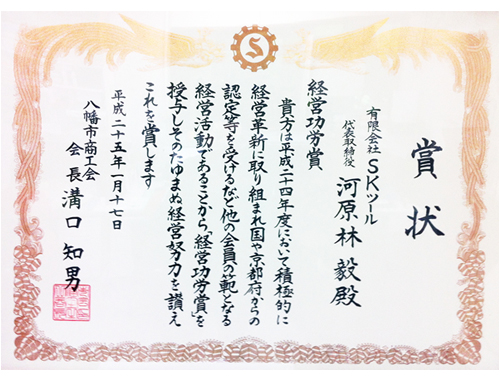 賞状
有限会社 SKツール
代表取締役 河原林 毅 殿
経営功労賞
貴方は平成二十四年度において積極的に
経営革新に取り組まれ国や京都府からの
認定等を受けるなど他の会員の範となる
経営活動であることから「経営功労賞」を
授与しそのたゆまぬ経営努力を讃え
これを賞します
平成二十五年一月十七日
八幡市商工会
会長 溝口 知男